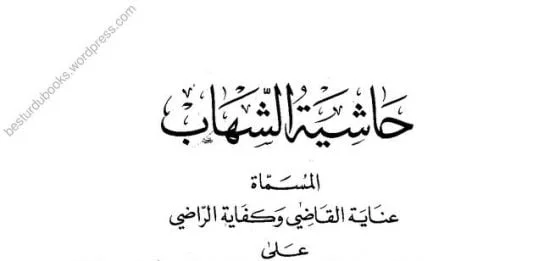 besturdubooks.wordpress.com
حَاشِيَةُ الشِّهَابِ
المُسَمَّاة
عنَايَة القَاضِي وَكفَايَة الرّاضِي
عَلَى